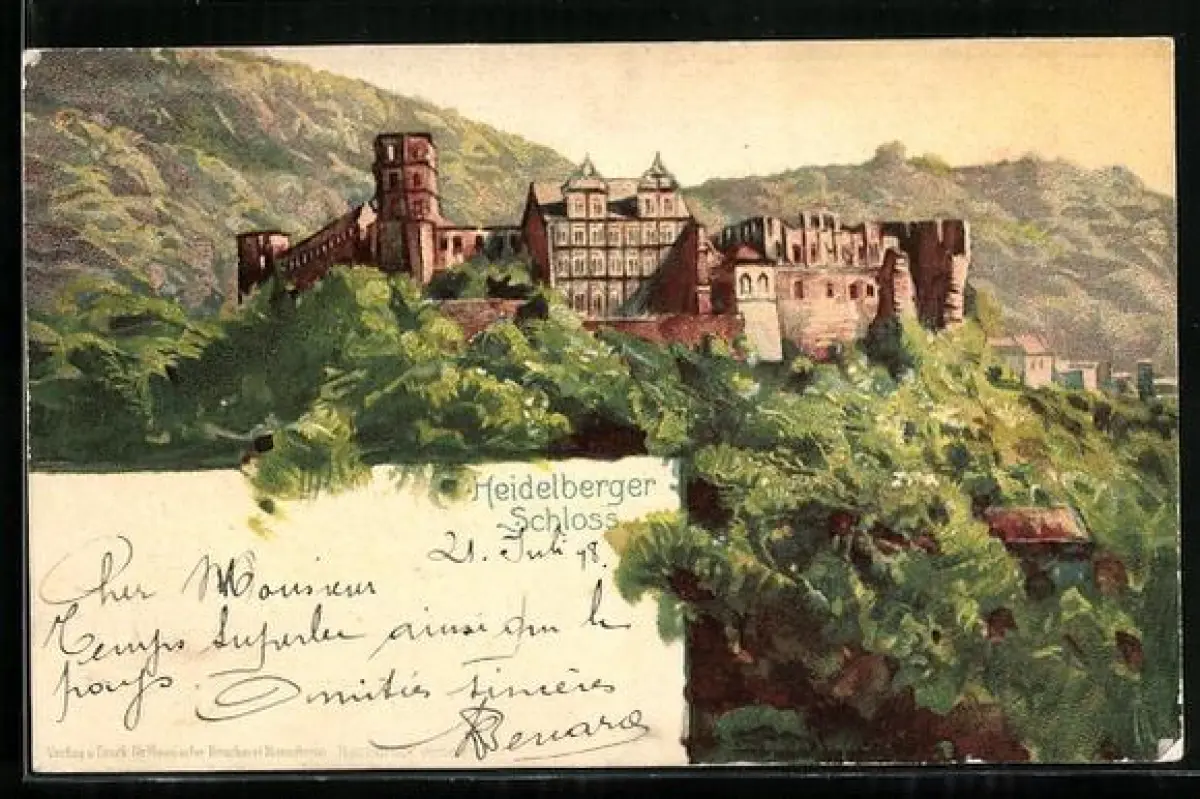 Heidelberger
Schloss
21. Juli 98.
Cher Monsieur
Temps superbe ainsi que le
pays. Amitiés sincères
Benard
Verlag u Druck